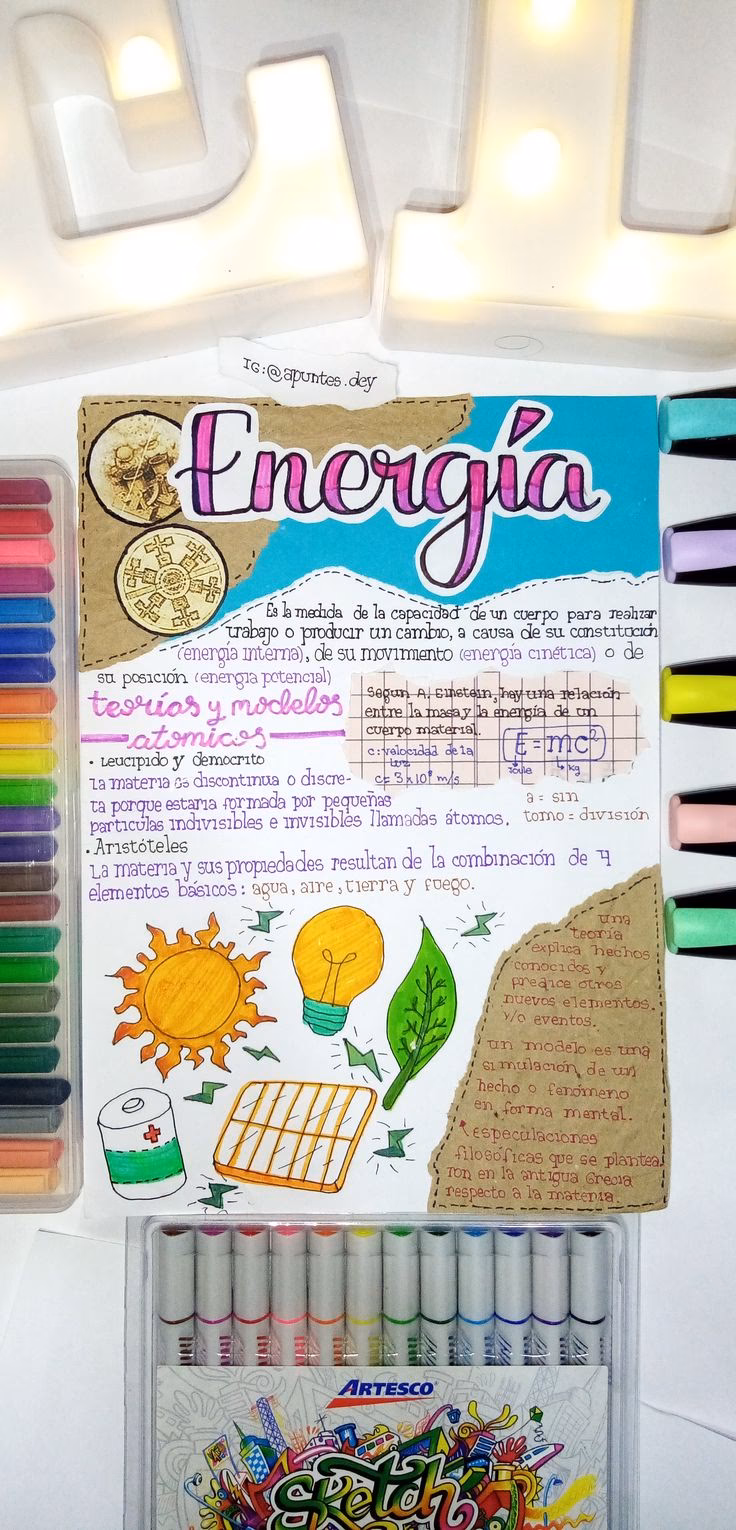 IG:@apuntes.dey
Energía
Es la medida de la capacidad de un cuerpo para realizar
trabajo o producir un cambio, a causa de su constitución
(energía interna), de su movimiento (energía cinética) o de
su posición (energía potencial)
teorías y modelos
atomicos
Segun A. Einstein, hay una relación
entre la masa y la energía de un
cuerpo material.
c: velocidad de la
luz
c = 3 x 10⁸ m/s
E = mc²
joule
kg
• Leucipido y democrito
La materia es discontinua o discre-
ta porque estaria formada por pequeñas
particulas indivisibles e invisibles llamadas átomos.
a = sin
tomo = división
. Aristóteles
La materia y sus propiedades resultan de la combinación de 4
elementos básicos: agua, aire, tierra y fuego.
una
teoría
explica hechos
conocidos y
predice otros
nuevos elementos.
y/o eventos.
un modelo es una
simulación de un
hecho o fenómeno
en forma mental.
especulaciones
filosóficas que se plantea
ron en la antigua Grecia
respecto a la materia.
ARTESCO
Sketch